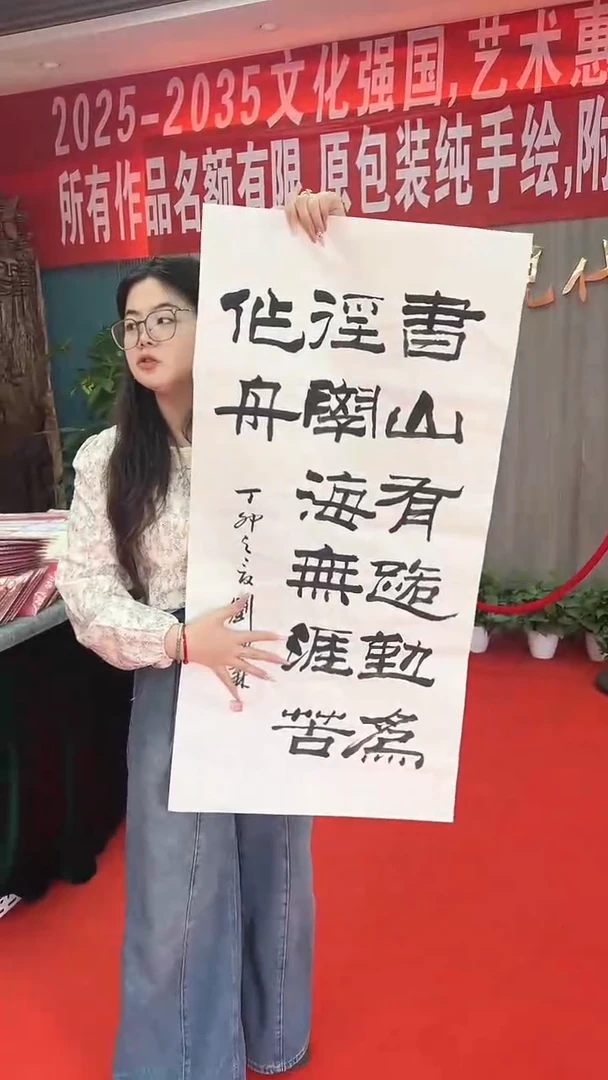 2025-2035文化强国,艺术惠
所有作品名额有限,原包装纯手绘,附
書山有路勤為
徑學海無涯苦
作舟
丁卯之
劉